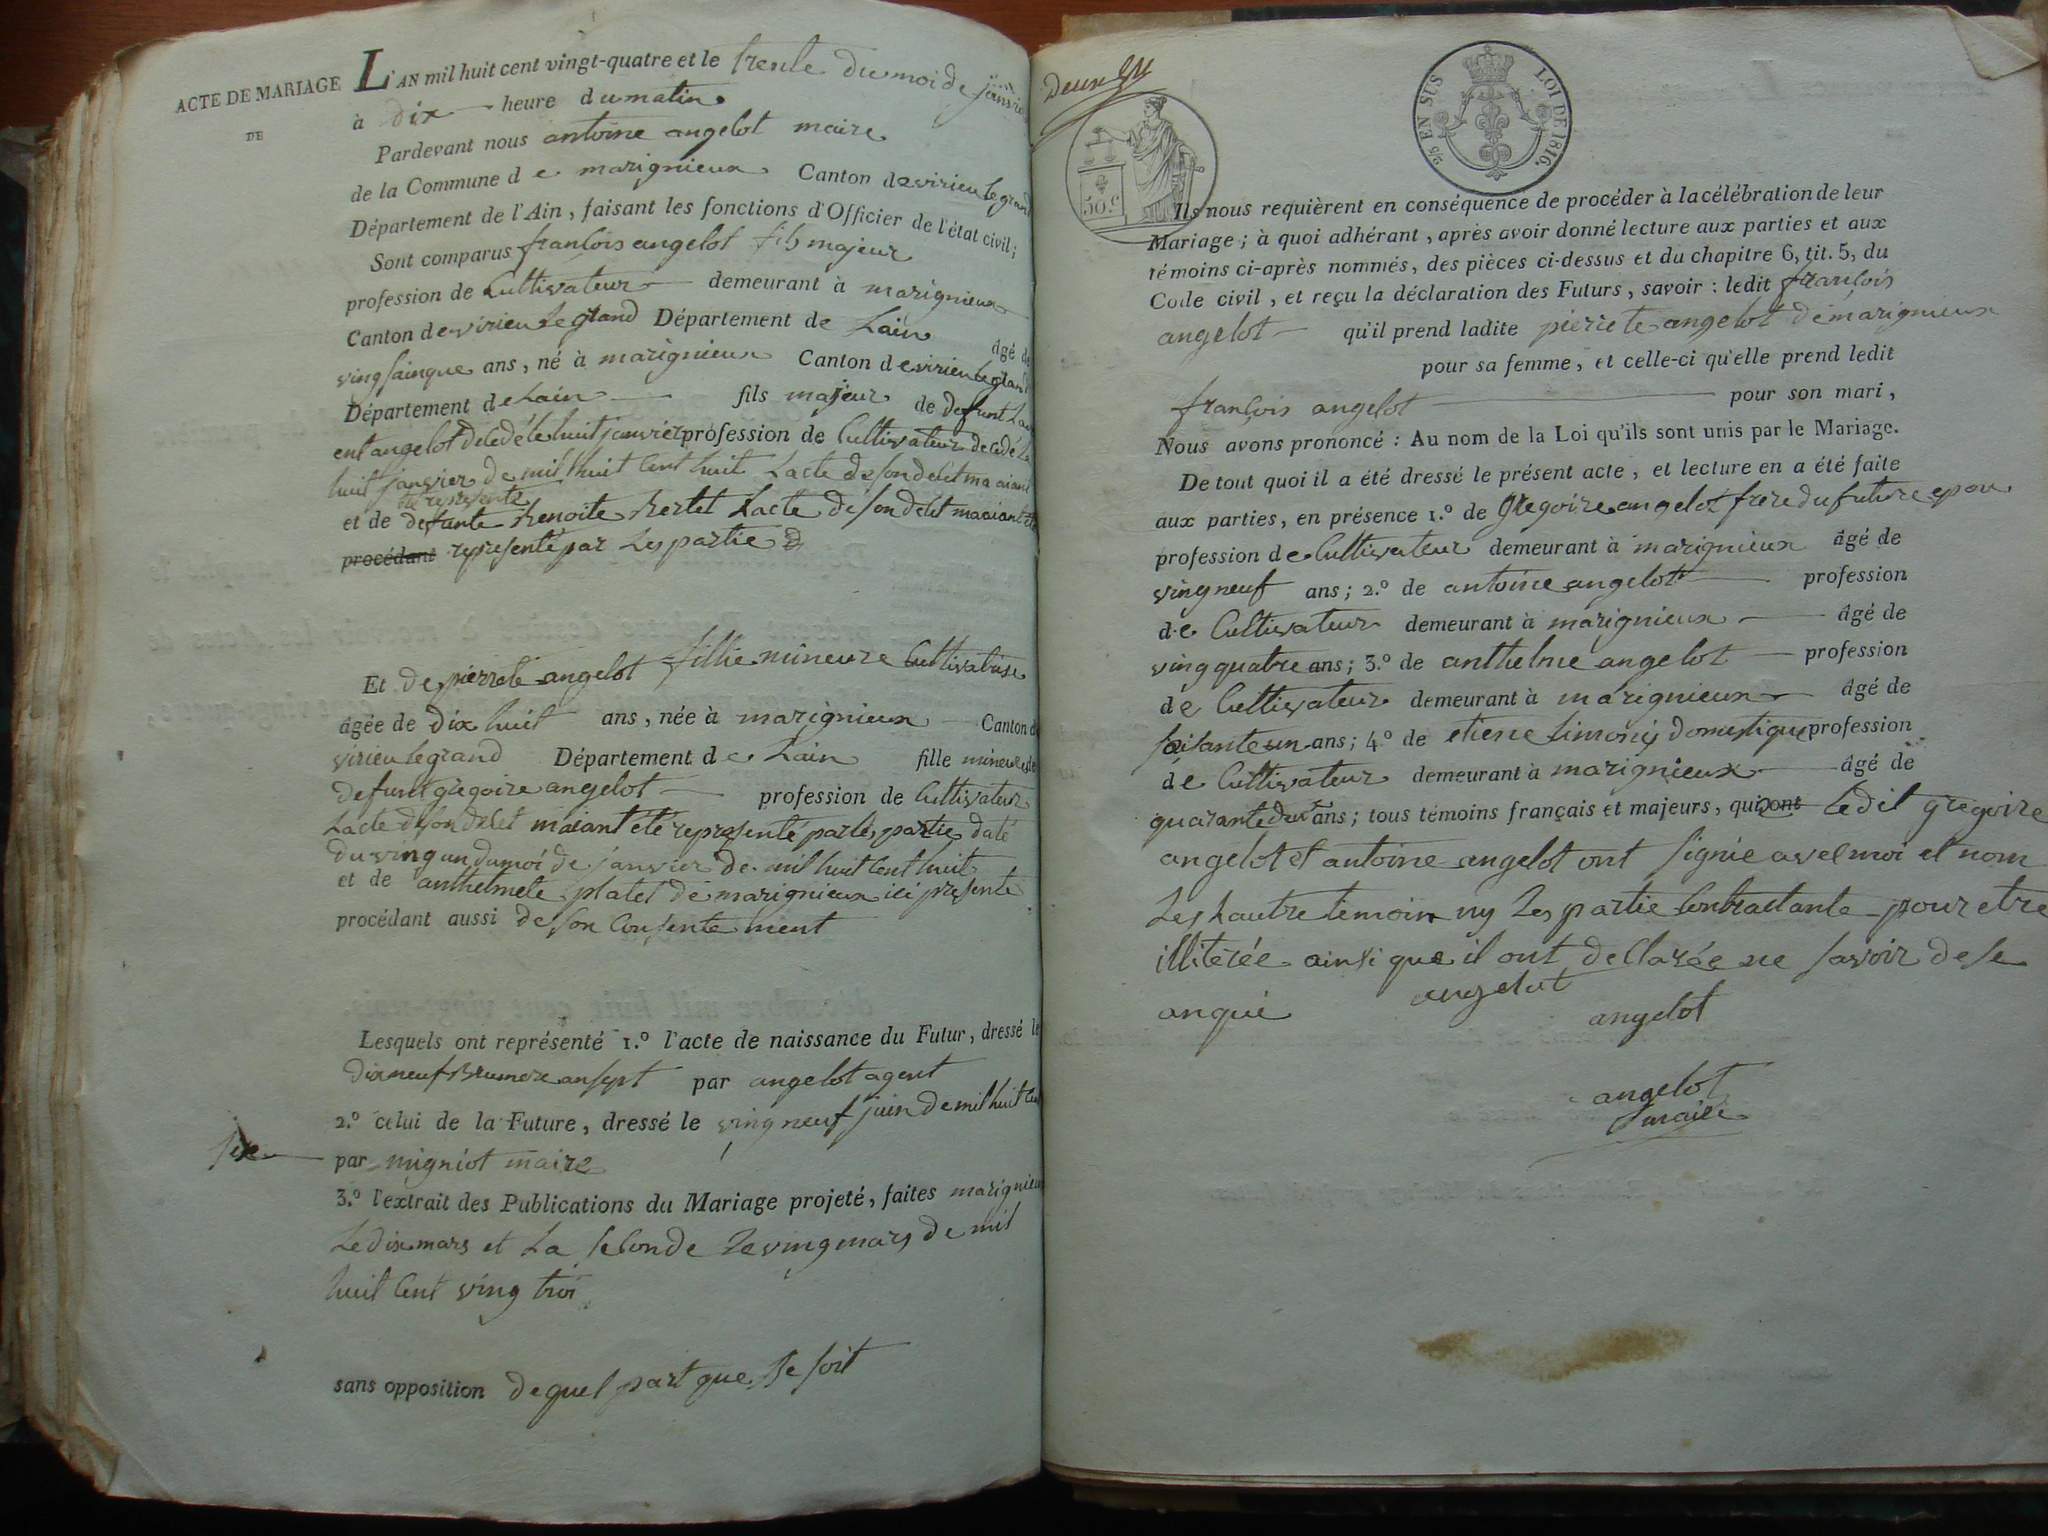 ACTE DE MARIAGE
DE
L'AN mil huit cent vingt-quatre et le trente du moi de janvier
à dix heure du matin
Pardevant nous antoine angelot maire
de la Commune de marignieux Canton de virieu le grand
Département de l'Ain, faisant les fonctions d'Officier de l'état civil;
Sont comparus françois angelot fils majeur
profession de Cultivateur demeurant à marignieux
Canton de virieu le grand Département de Lain âgé de
ving sainque ans, né à marignieux Canton de virieu le grand
Département de Lain fils majeur de defunt Lau
ent angelot décédé le huit janvier profession de Cultivateur decedé Le
huit janvier de mil huit Cent huit Lacte de son delet ma aiant
été representé
et de defunte Benoite Bertet Lacte de son delet ma aiant été
procédant representé par Les partie
Et de pierrete angelot fillie mineure Cultivatrise
âgée de dix huit ans, née à marignieux Canton de
virieu le grand Département de Lain fille mineure de
defunt grégoire angelot profession de Cultivateur
Lacte de son delet maiant été representé par les partie daté
du ving un du moi de janvier de mil huit Cent huit
et de anthelmete platet de marignieux ici presente
procédant aussi de son Consente ment
Lesquels ont représenté 1.º l'acte de naissance du Futur, dressé le
dix neuf Brumere an sept par angelot agent
2.º celui de la Future, dressé le ving neuf juin de mil huit Cent
six par migniot maire
3.º l'extrait des Publications du Mariage projeté, faites marignieux
Le dix mars et La seConde Le ving mars de mil
huit Cent ving troi
sans opposition de quel part que se soit
deux
25 EN SUS
LOI DE 1816.
50.c
Ils nous requièrent en conséquence de procéder à la célébration de leur
Mariage; à quoi adhérant, après avoir donné lecture aux parties et aux
témoins ci-après nommés, des pièces ci-dessus et du chapitre 6, tit. 5, du
Code civil, et reçu la déclaration des Futurs, savoir: ledit françois
angelot qu'il prend ladite pierrete angelot de marignieux
pour sa femme, et celle-ci qu'elle prend ledit
françois angelot pour son mari,
Nous avons prononcé: Au nom de la Loi qu'ils sont unis par le Mariage.
De tout quoi il a été dressé le présent acte, et lecture en a été faite
aux parties, en présence 1.º de Gregoire angelot frere du future epou
profession de Cultivateur demeurant à marignieux âgé de
ving neuf ans; 2.º de antoine angelot profession
de Cultivateur demeurant à marignieux âgé de
ving quatre ans; 3.º de anthelme angelot profession
de Cultivateur demeurant à marignieux âgé de
soisante un ans; 4.º de etiene simony domestique profession
de Cultivateur demeurant à marignieux âgé de
quarante deux ans; tous témoins français et majeurs, qui ont Ledit gregoire
angelot et antoine angelot ont signie avec moi et nom
Les hautre temoin ny Les partie Contractante pour etre
illitérée ainsi que il ont declarée ne savoir de se
anqui
angelot
angelot
angelot
maire